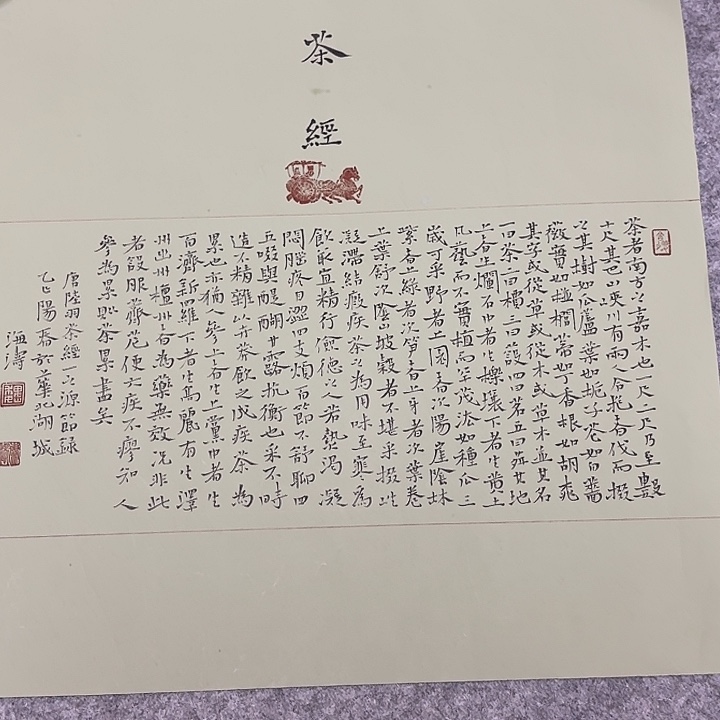 茶
經
茶者南方之嘉木也一尺二尺乃至數
十尺其巴山峽川有兩人合抱者伐而掇
之其樹如瓜蘆葉如梔子花如白薔
薇實如栟櫚蒂如丁香根如胡桃
其字或從草或從木或草木并其名
一曰茶二曰檟三曰蔎四曰茗五曰荈其地
上者生爛石中者生櫟壤下者生黃土
凡藝而不實植而罕茂法如種瓜三
歲可采野者上園者次陽崖陰林
紫者上綠者次筍者上牙者次葉卷
上葉舒次陰山坡穀者不堪采掇性
凝滯結瘕疾茶之為用味至寒為
飲最宜精行儉德之人若熱渴凝
悶腦疼目澀四支煩百節不舒聊四
五啜與醍醐甘露抗衡也采不時
造不精雜以卉莽飲之成疾茶為
累也亦猶人參上者生上黨中者生
百濟新羅下者生高麗有生澤
州幽州檀州者為藥無效況非此
者設服薺苨使六疾不瘳知人
參為累則茶累盡矣
唐陸羽茶經一之源節錄
乙巳陽春於北湖城
海濤